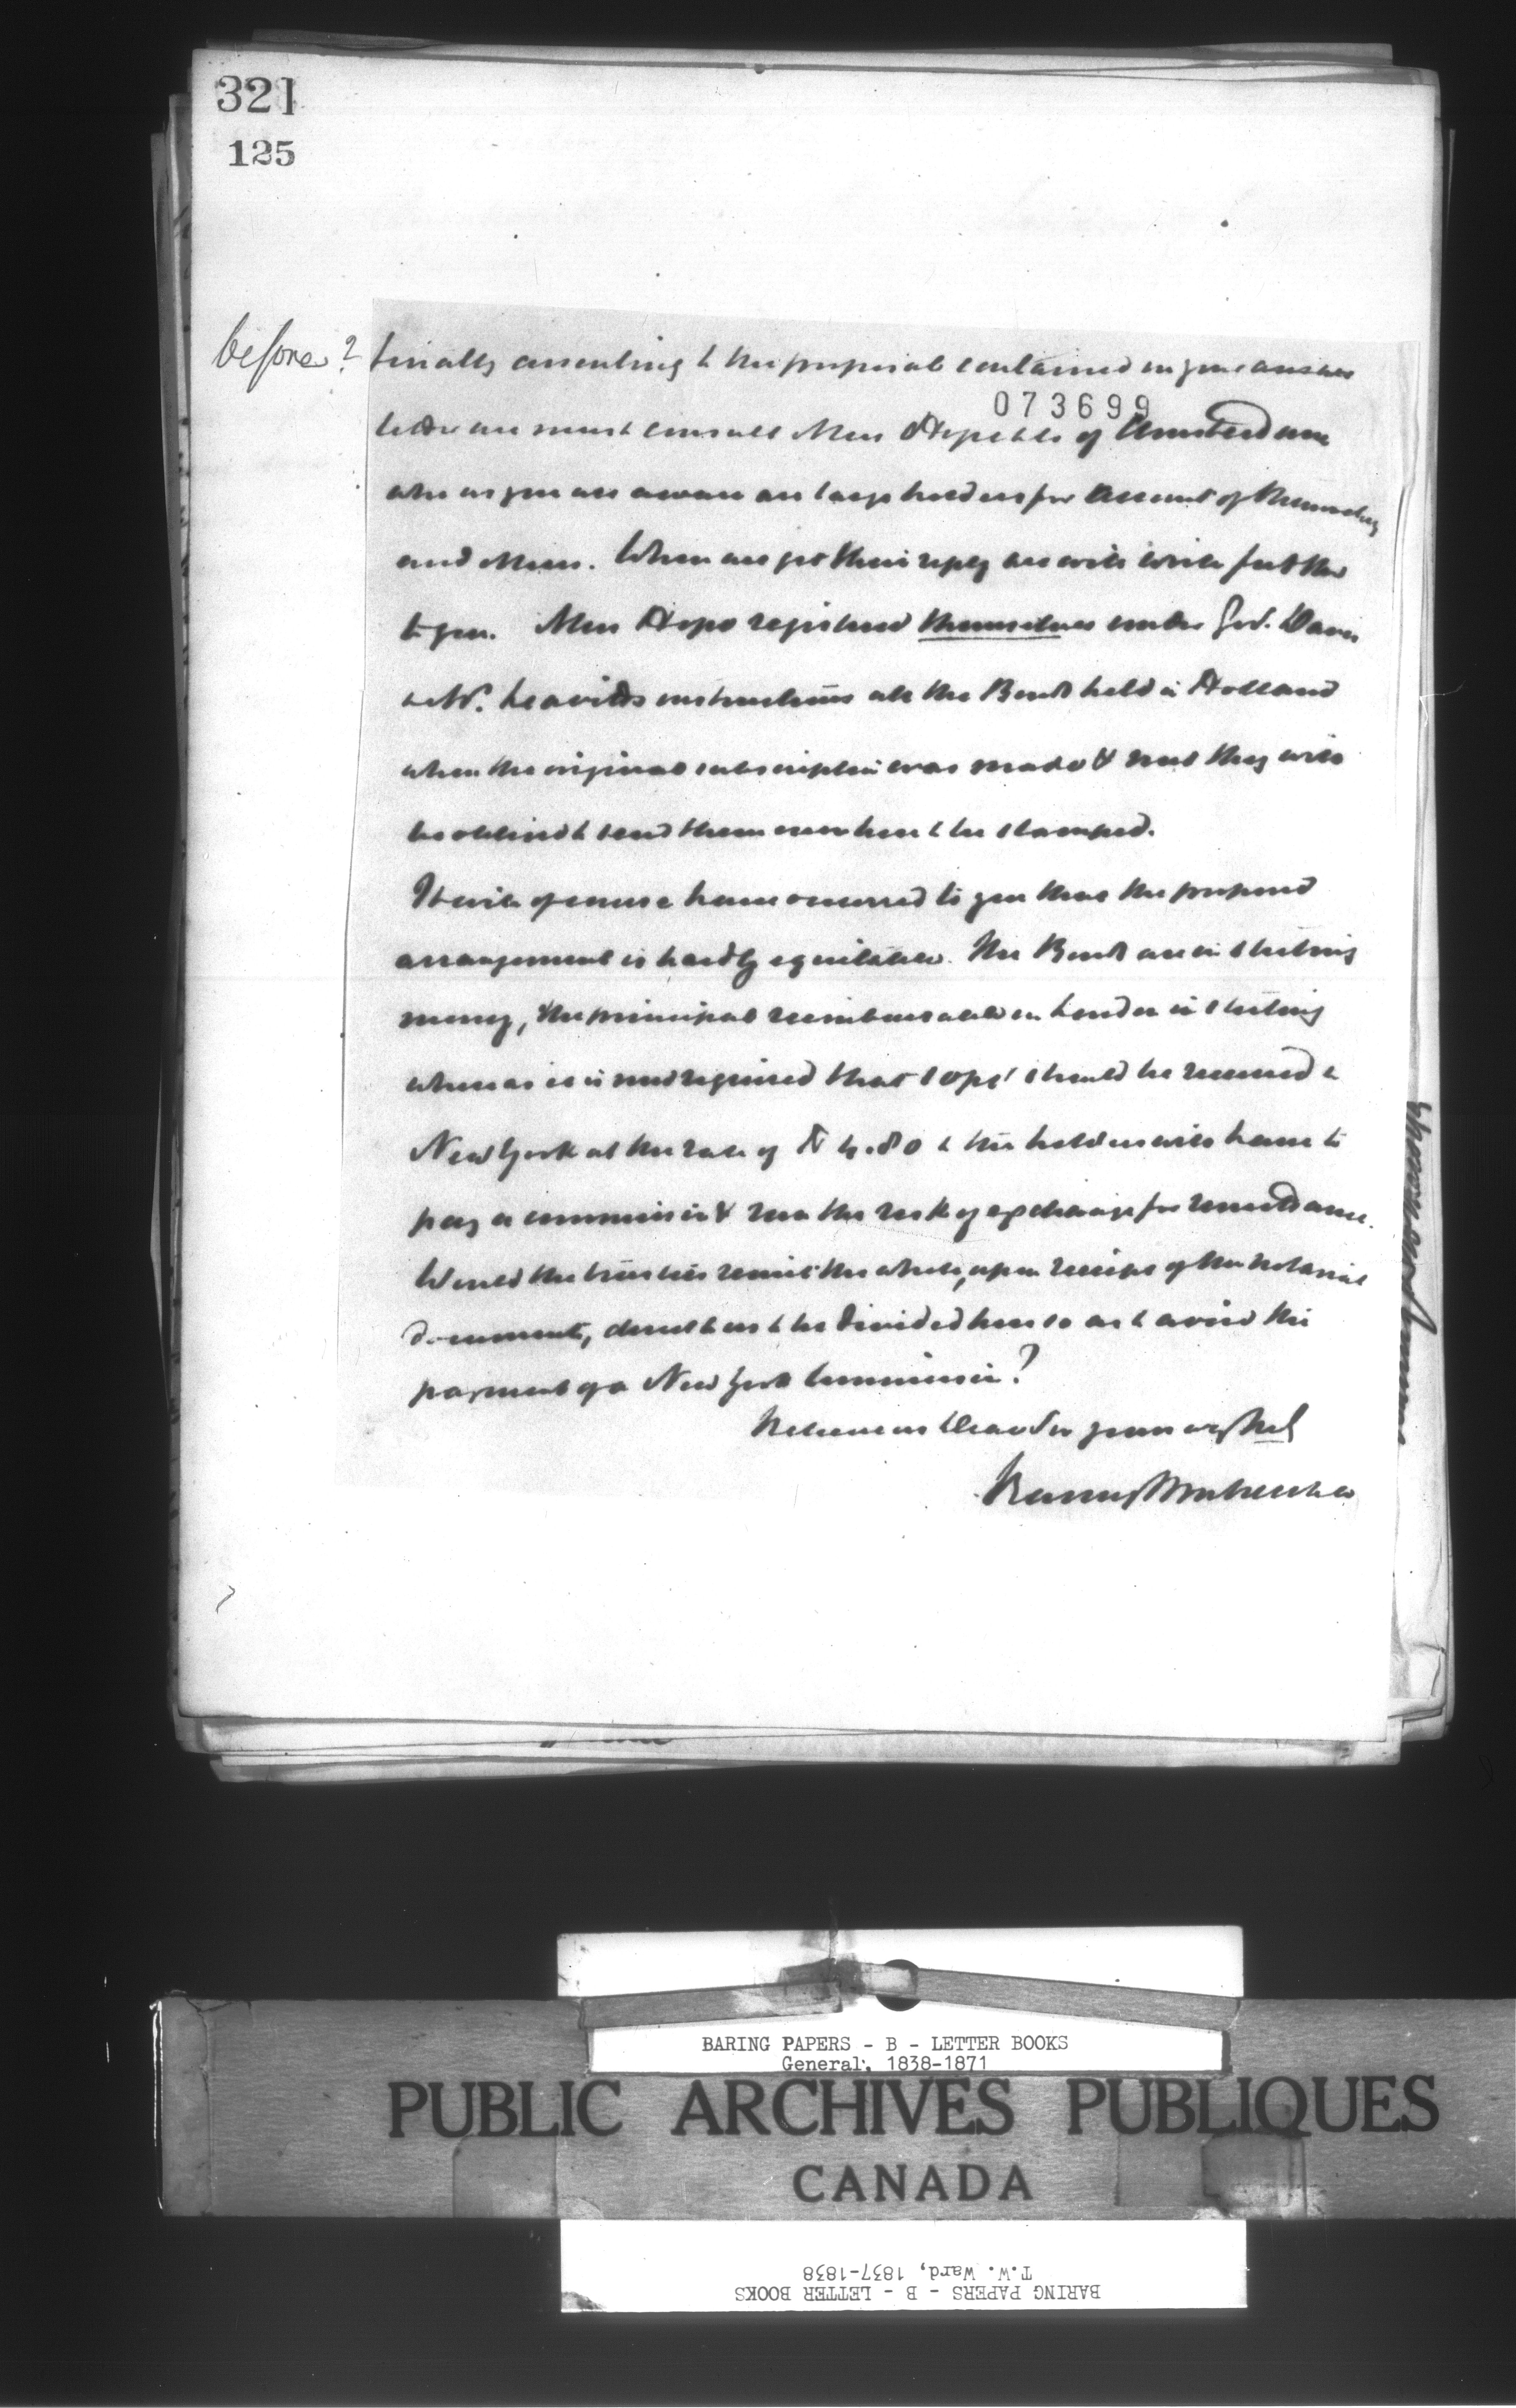 321
125
before? finally assenting to the proposal contained in your
073699
letter we must consult Mess Hope & Co of Amsterdam
who as you are aware are large holders for account of themselves
and others. When we get their reply we will write further
to you. Mess Hope registered themselves under Gov. Davis
& Mr. Leavitts instructions all the Bonds held in Holland
when the original subscription was made & now they will
be obliged to send them over here to be stamped.
It will of course have occurred to you that the proposed
arrangement is hardly equitable. The Bonds are in sterling
money, & the principal reimbursable in London in sterling
whereas it is now required that should be received in
New York at the rate of $4.80 & the holders will have to
pay a commission & run the risk of exchange for remittance.
Would the trustees remit the whole, upon receipt of the notarial
documents, direct to us to be divided here so as to avoid the
payment of a New York Commission?
We remain Dear Sir your ob Sts
Baring Brothers & Co
BARING PAPERS - B - LETTER BOOKS
General, 1838-1871
PUBLIC ARCHIVES PUBLIQUES
CANADA
T.W. Ward, 1837-1838
BARING PAPERS - B - LETTER BOOKS